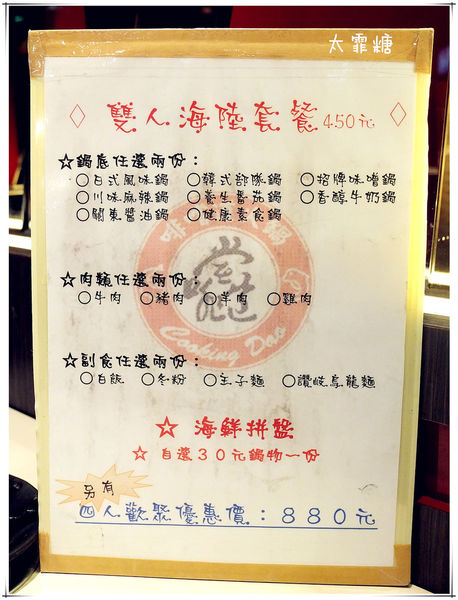 太霏糖
◇ 雙人海陸套餐 450元 ◇
☆鍋底任選兩份：
○日式風味鍋 ○韓式部隊鍋 ○招牌味噌鍋
○川味麻辣鍋 ○養生番茄鍋 ○香醇牛奶鍋
○關東醬油鍋 ○健康素食鍋
☆肉類任選兩份：
○牛肉 ○豬肉 ○羊肉 ○雞肉
Cooking Dao
☆副食任選兩份：
○白飯 ○冬粉 ○王子麵 ○讚岐烏龍麵
☆ 海鮮拼盤
☆ 自選30元鍋物一份
另有
四人歡聚優惠價：880元